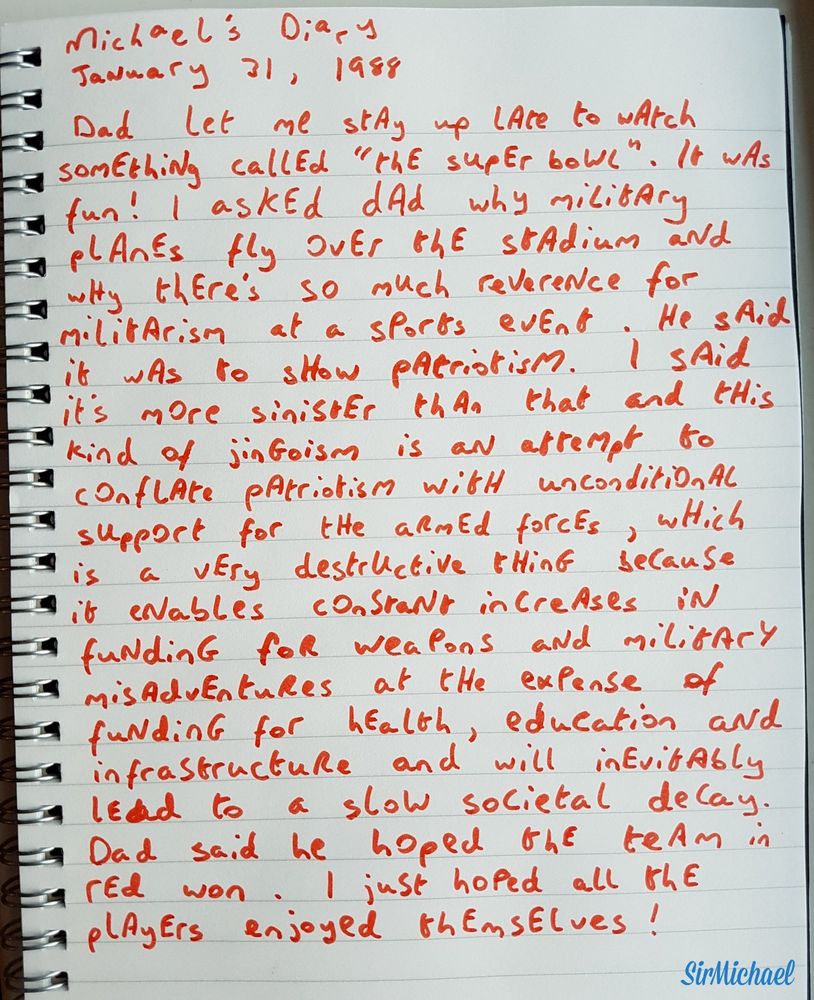 Michael's Diary
January 31, 1988
Dad let me stAy up lAte to wAtch
somEthiNg callEd "thE supEr bowl". It wAs
fun! I asKEd dAd why militAry
plAnEs fly OvEr thE stAdium aNd
wHy thEre's so much reverеNce for
militArism at a sPorts evEnt. He sAid
it wAs to sHow pAtriotisM. I sAid
it's mOre sinistEr thAn that and tHis
kind of jinGoism is aN atteMpt to
cOnflAte pAtriotism witH unconditiOnAL
suppOrt for tHe aRmEd forcEs, wHich
is a vEry destrUctive tHinG because
it eNAblEs cOnStaNt increAses iN
fuNdinG foR weapons aNd militArY
misAdvEntuRes at tHe exPense of
fuNdinG for hEalth, educAtion aNd
infrastructuRe and will inEvitAbly
lEAd to a slow sociеtal decay.
Dad said he hOped thE teAm in
rEd won. I just hoPed all thE
plAyErs enjoyed thEmsElves!
SirMichael